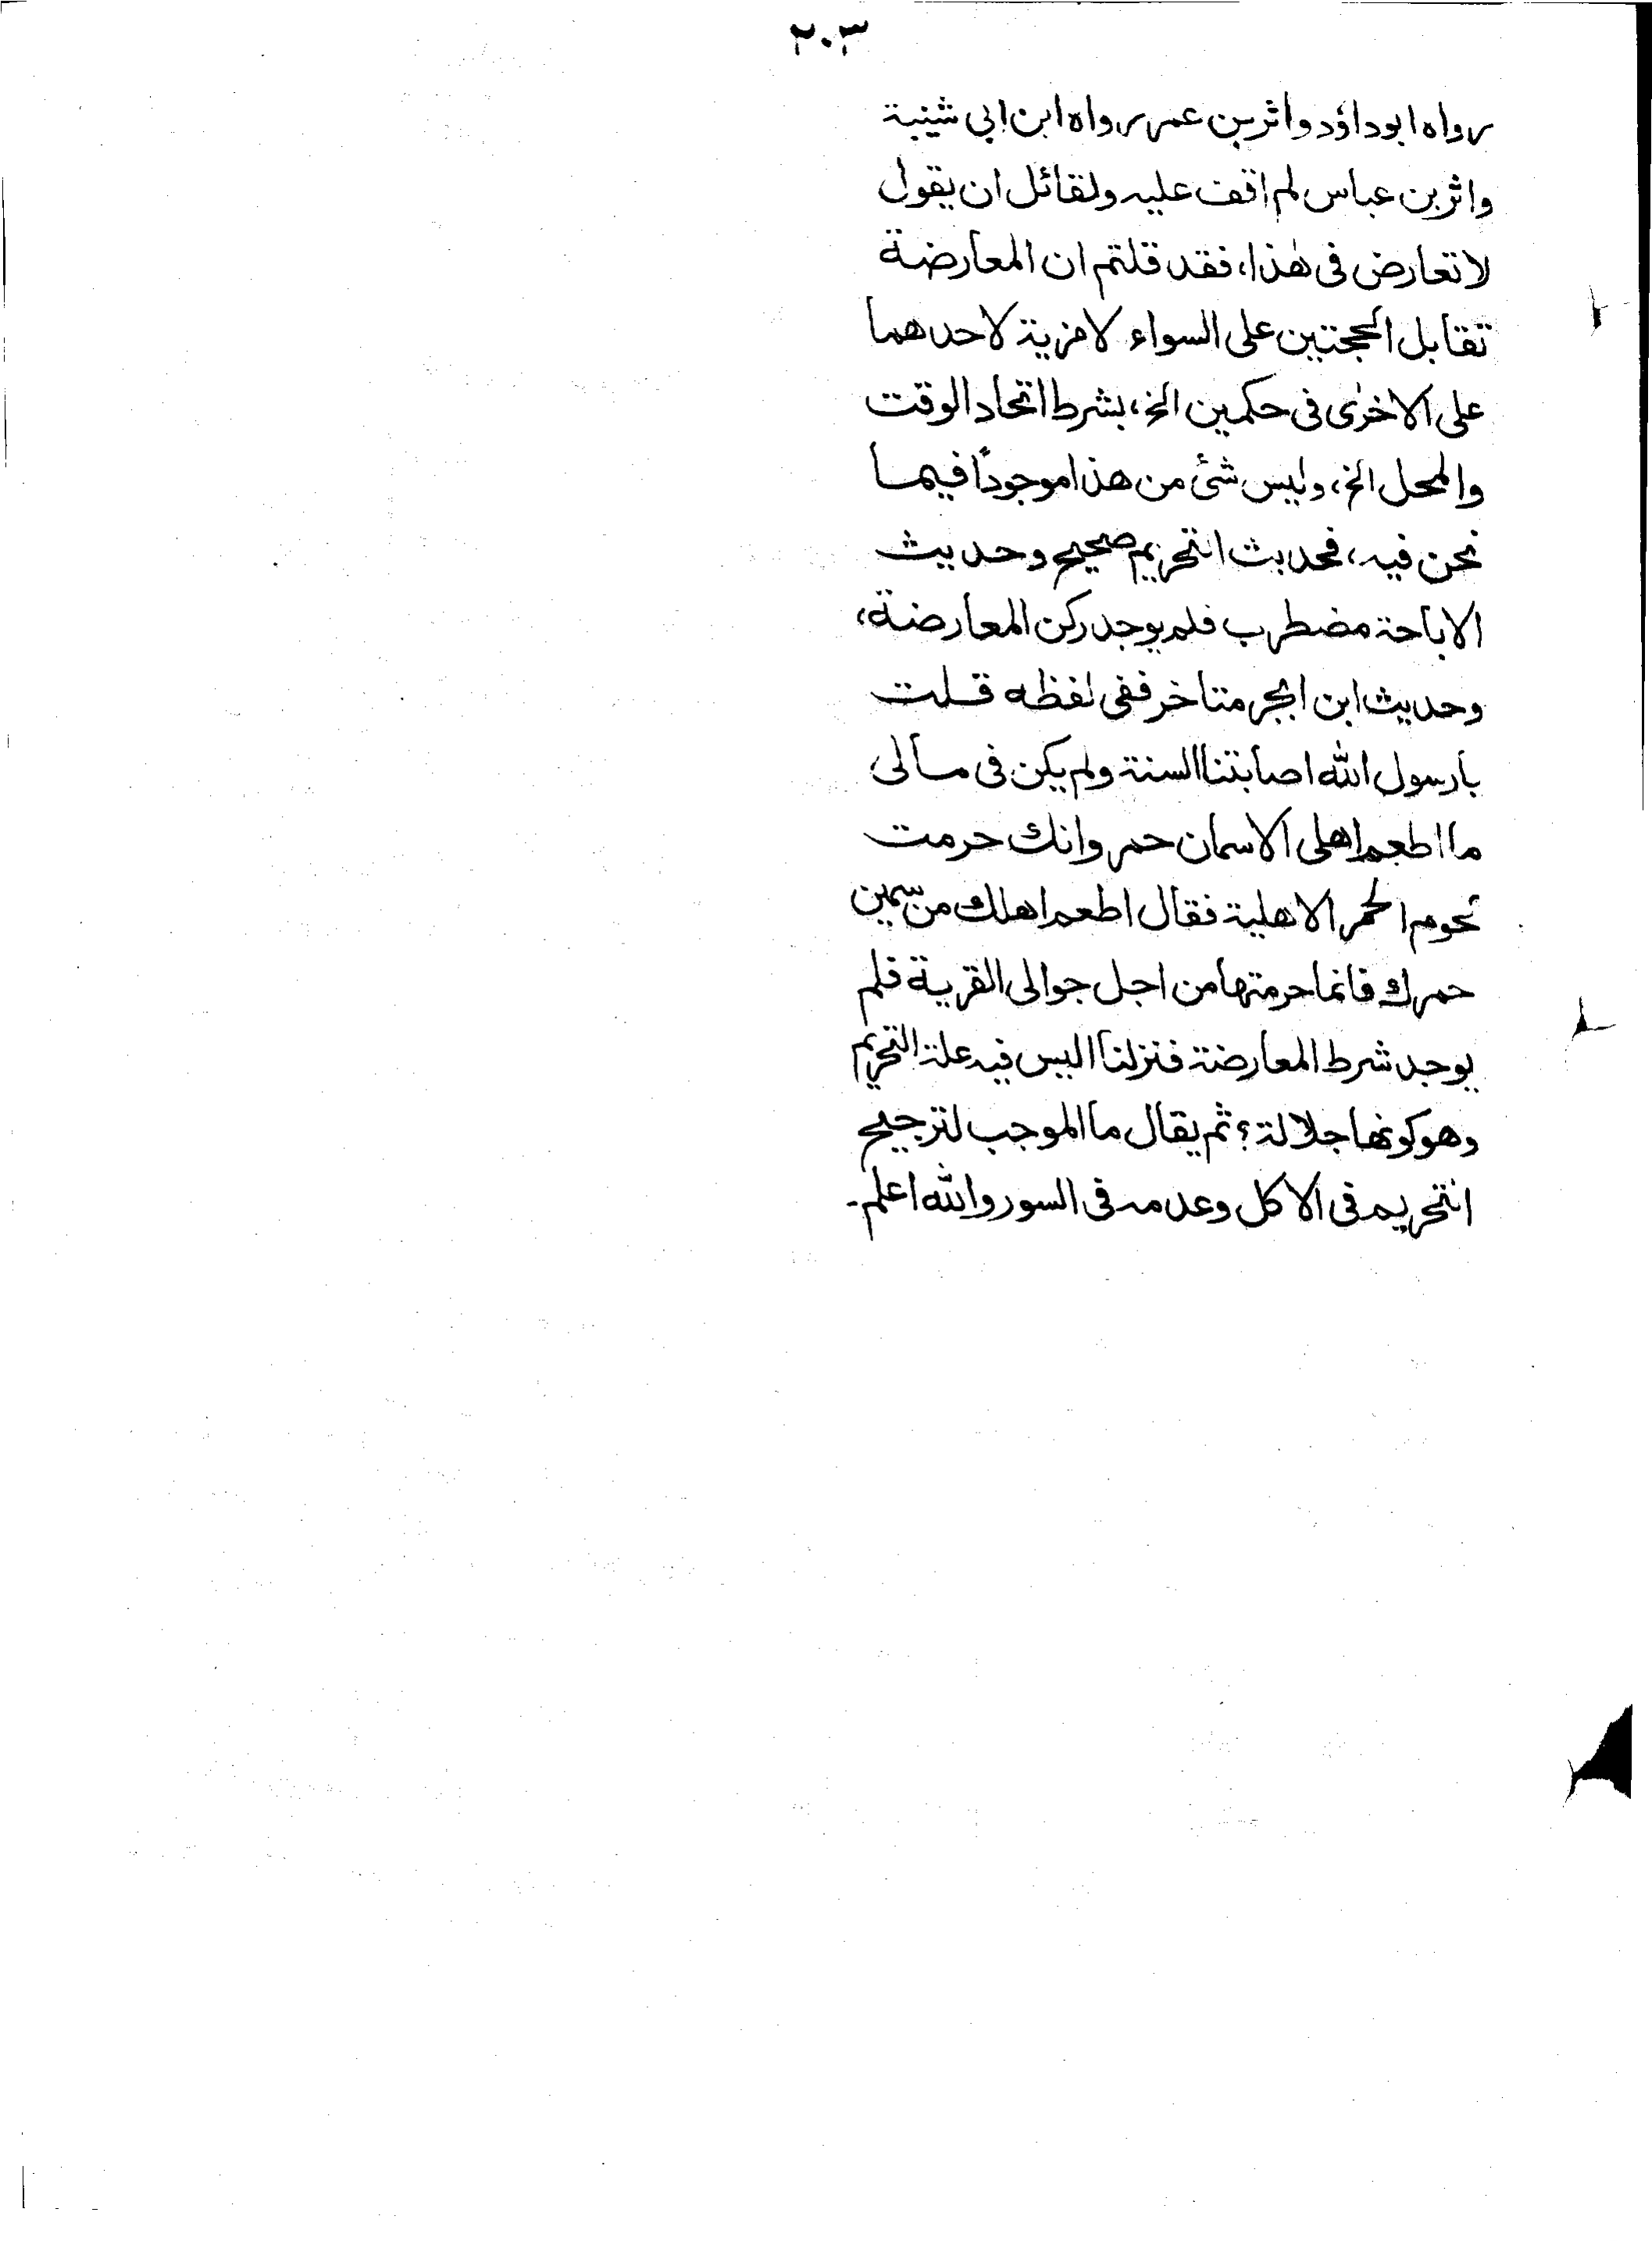 ٢٠٣
رواه ابوداؤد واثربن عمر رواه ابن ابي شيبة
واثربن عباس لم اقف عليه ولقائل ان يقول
لا تعارض فى هٰذا، فقد قلتم ان المعارضة
تقابل الحجتين على السواء لا مزية لاحدهما
على الاخرٰى فى حكمين الخ، بشرط اتحاد الوقت
والمحل الخ، وليس شئ من هذا موجوداً فيما
نحن فيه، فحديث التحريم صحيح وحديث
الاباحة مضطرب فلم يوجد ركن المعارضة،
وحديث ابن ابجر متاخر ففى لفظه قلت
يارسول الله اصابتنا السنة ولم يكن فى مالى
ما اطعم اهلى الاسمان حمر وانك حرمت
لحوم الحمر الاهلية فقال اطعم اهلك من سمين
حمرك فانما حرمتها من اجل جوالى القرية فلم
يوجد شرط المعارضة فنزلنا اليس فيه علة التحريم
وهو كونها جلالة؟ ثم يقال ما الموجب لترجيح
التحريم فى الاكل وعدمه فى السور والله اعلم۔